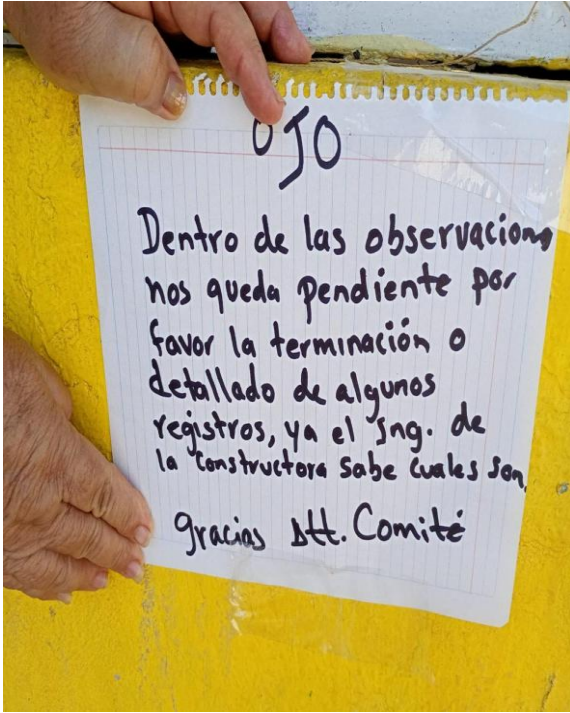 OJO
Dentro de las observaciones
nos queda pendiente por
favor la terminación o
detallado de algunos
registros, ya el Ing. de
la Constructora sabe cuales son.
gracias Att. Comité